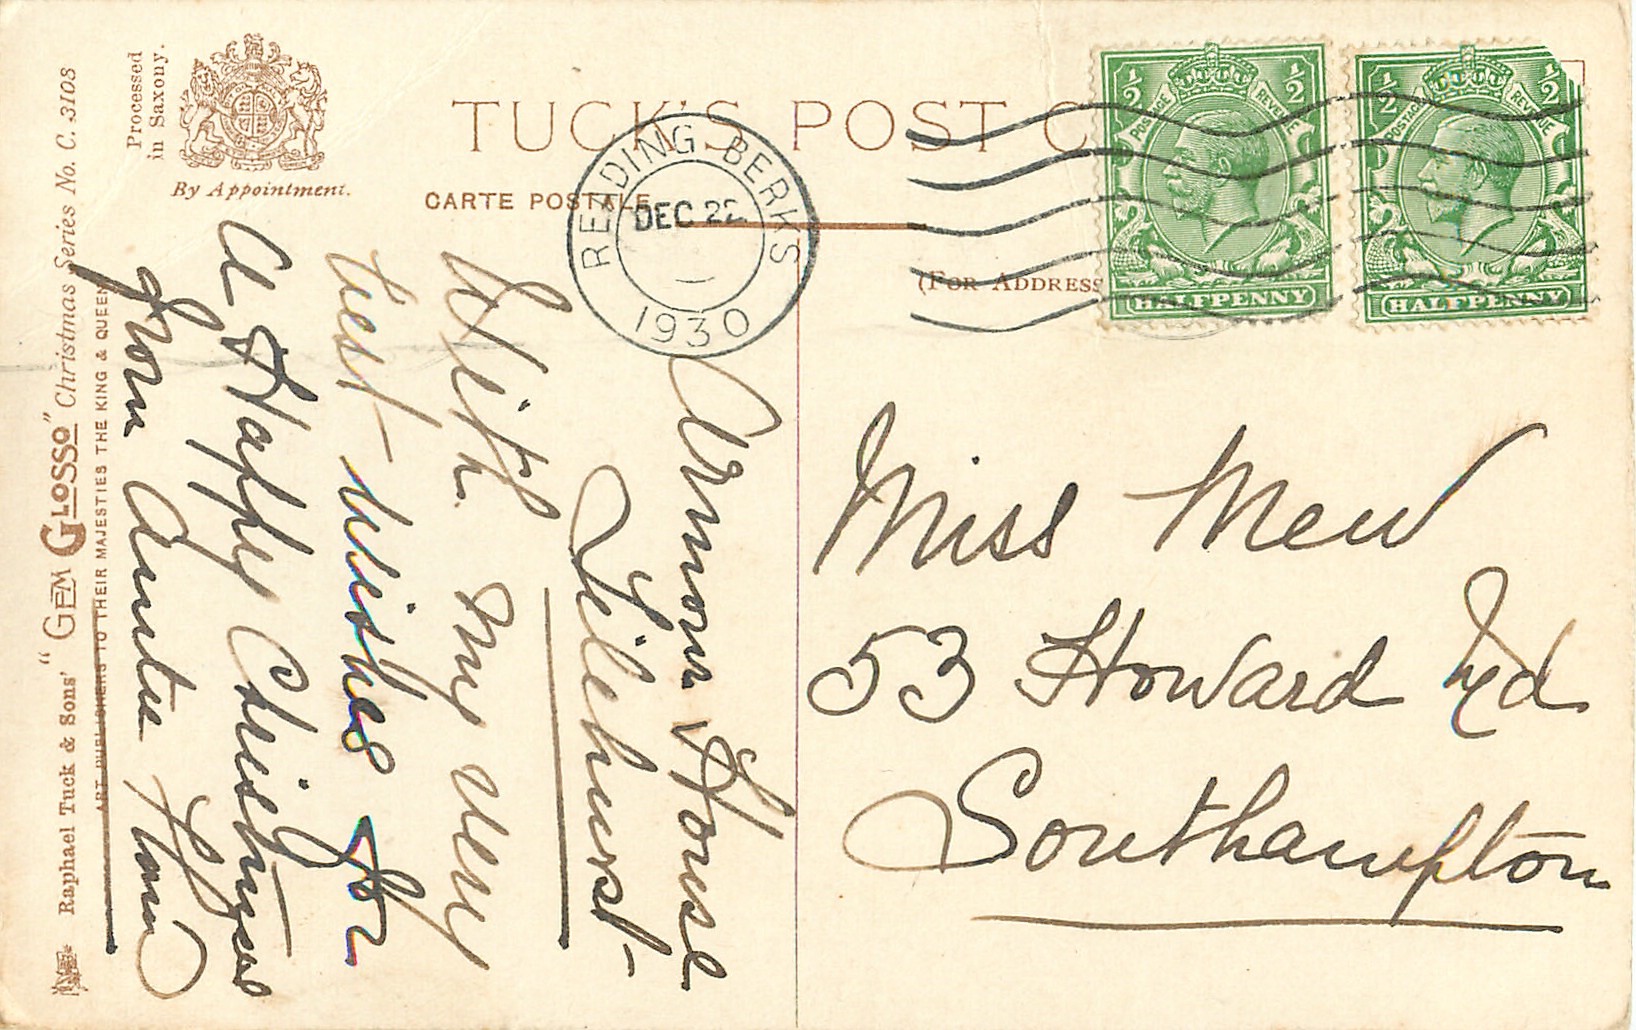 TUCK'S POST C
CARTE POSTALE
(FOR ADDRESS
Processed
in Saxony.
By Appointment.
READING BERKS
DEC 22
1930
½ ½
POSTAGE REVENUE
HALFPENNY
½ ½
POSTAGE REVENUE
HALFPENNY
House
Tilehurst
With my very
best wishes for
A Happy Christmas
from Auntie
Miss Mew
53 Howard Rd
Southampton
Raphael Tuck & Sons' "GEM GLOSSO" Christmas Series No. C. 3108
ART PUBLISHERS TO THEIR MAJESTIES THE KING & QUEEN